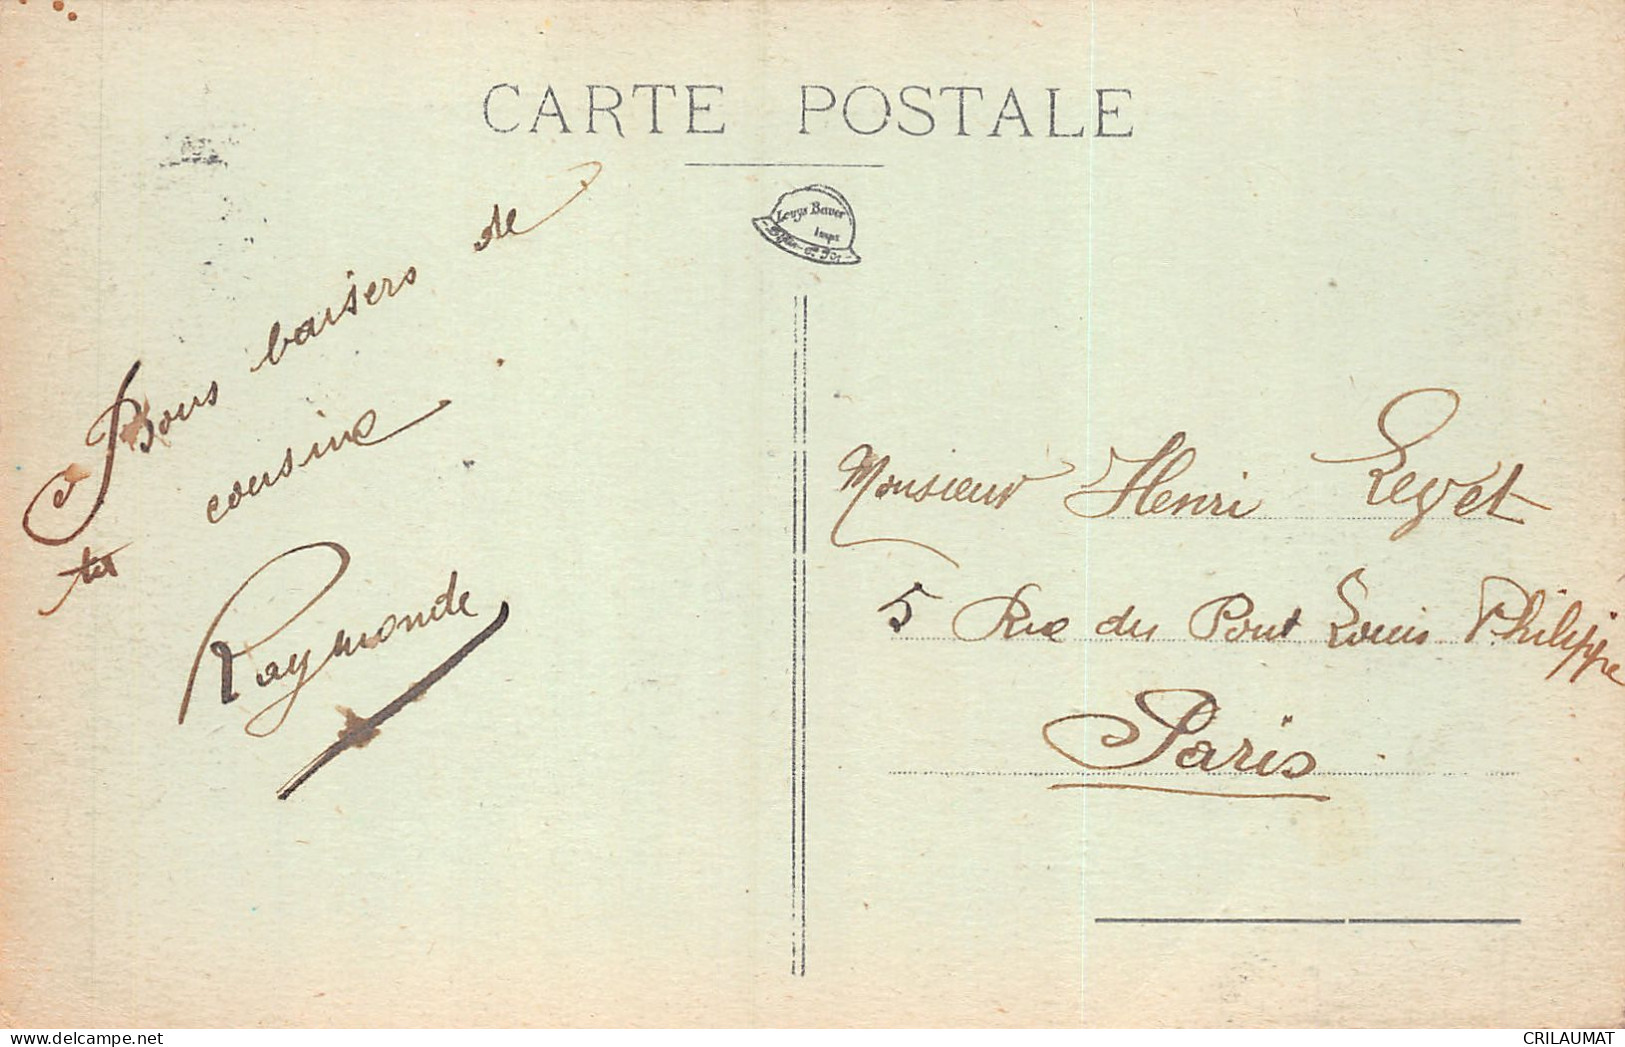 CARTE POSTALE
Louys Bauer
Imps
Dijon
Bons baisers de
ta cousine
Raymonde
Monsieur Henri
5 Rue du Pont Louis Philippe
Paris
delcampe.net
CRILAUMAT